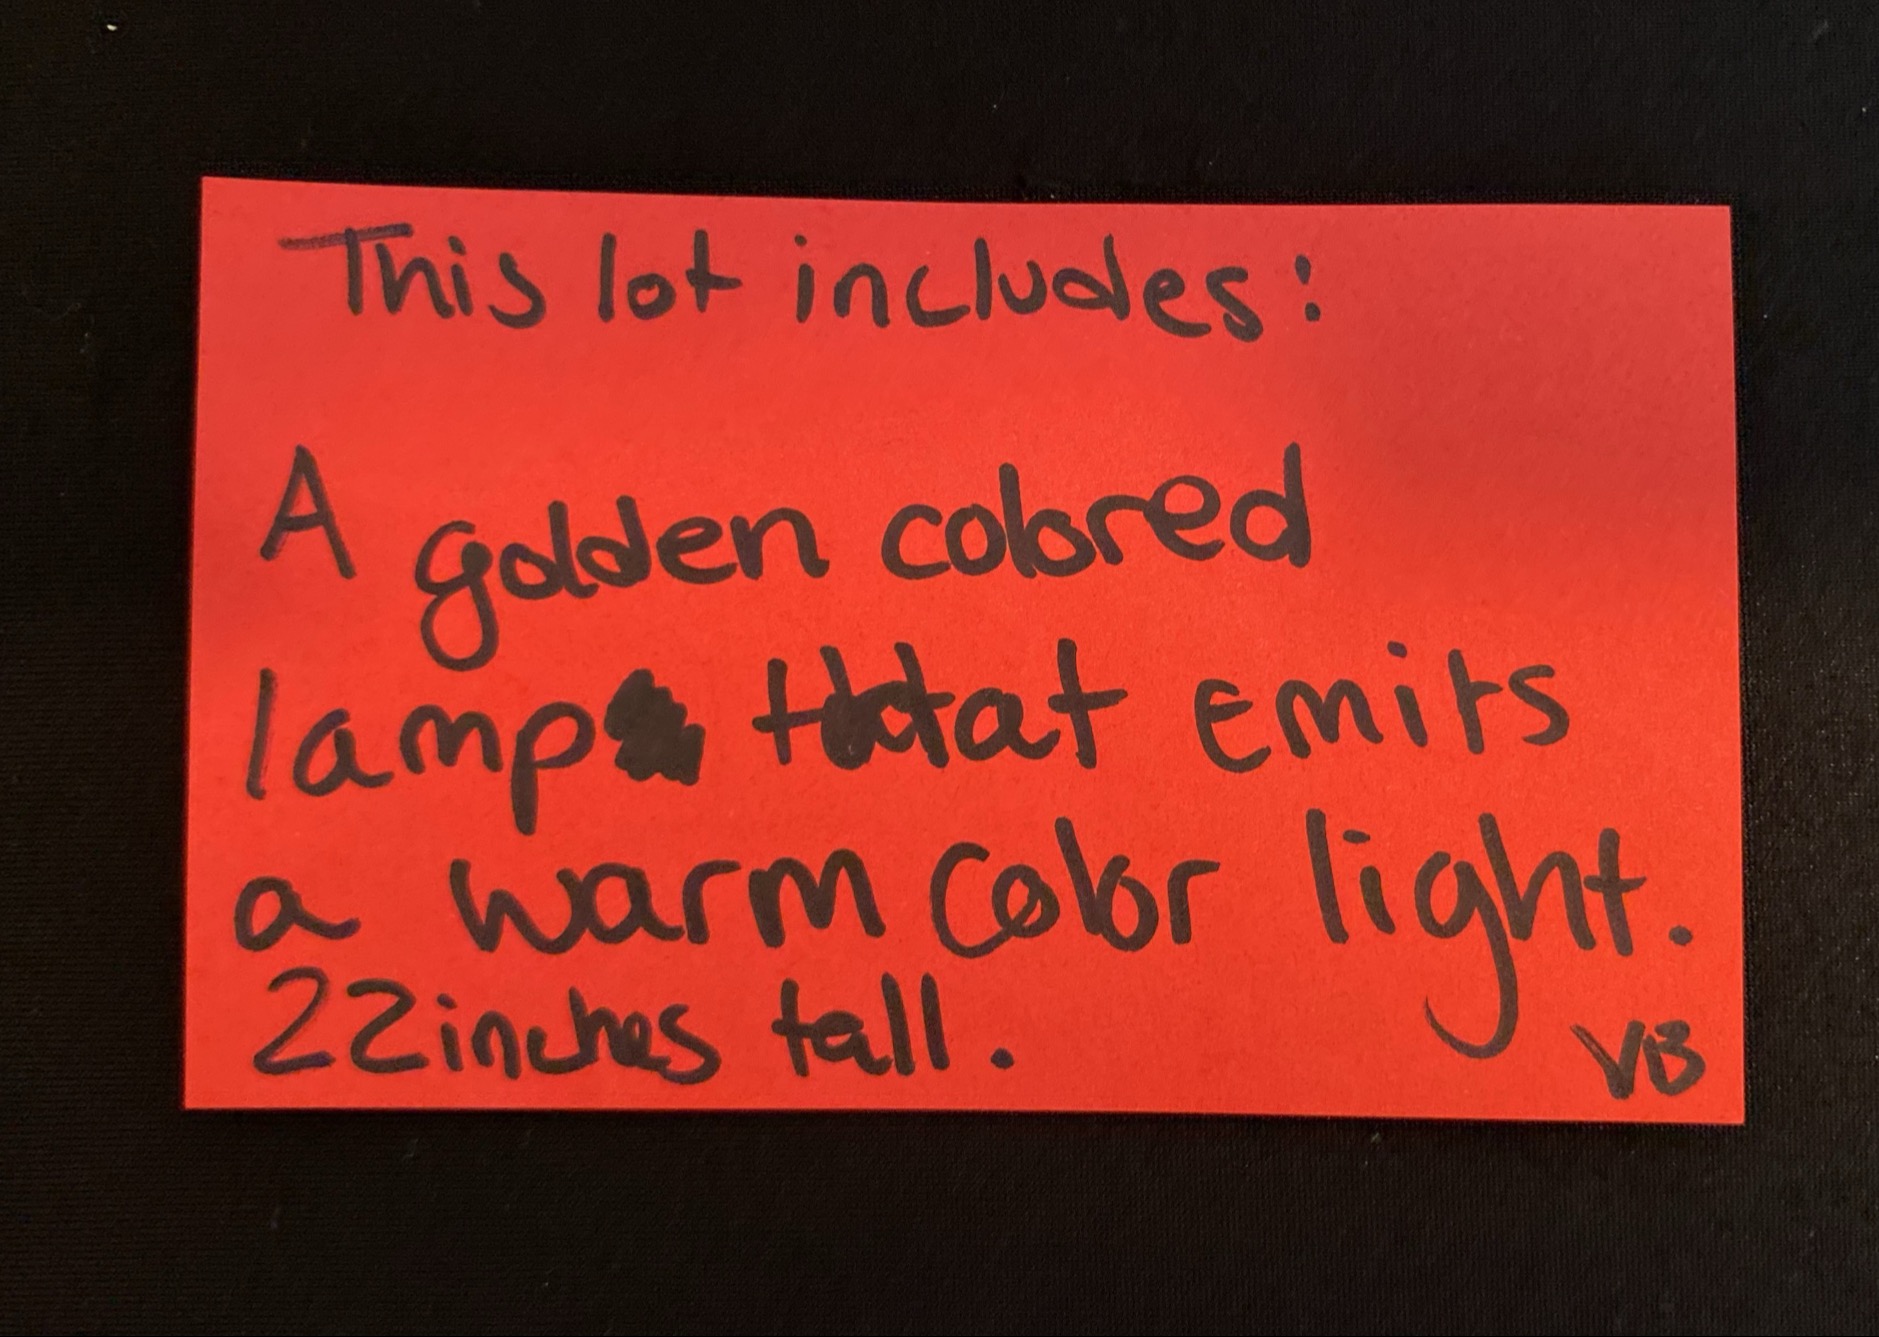 This lot includes:
A golden colored
lamp that emits
a warm color light.
22 inches tall.
VB